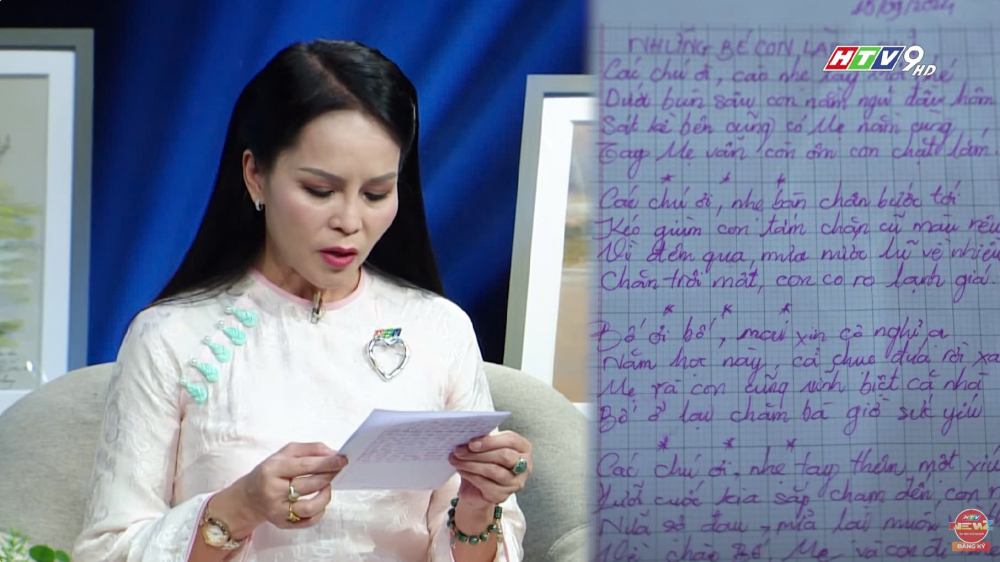 15/09/2024
NHỮNG BÉ CON LÀNG
HTV9 HD
Các chú ơi, cào nhẹ tay
Dưới bùn sâu con nằm ngủ đầu hôm
Sát kề bên cũng có Mẹ nằm cùng
Tay Mẹ vẫn còn ôm con chặt lắm.
* * *
Các chú ơi, nhẹ bàn chân bước tới
Kéo giùm con tấm chăn cũ màu rêu
Vì đêm qua, mưa nước lũ về nhiều
Chăn trôi mất, con co ro lạnh giá.
* * *
Bố ơi bố, mai xin cô nghỉ ạ
Năm học này, cả chục đứa rời xa
Mẹ và con cũng vĩnh biệt cả nhà
Bố ở lại chăm bà giờ sức yếu
* * *
Các chú ơi, nhẹ tay thêm một xíu
Lưỡi cuốc kia sắp chạm đến con
Nữa sợ đau, mà lại muốn
Bố, Mẹ và con đi
HTV
NEW
ĐĂNG KÝ